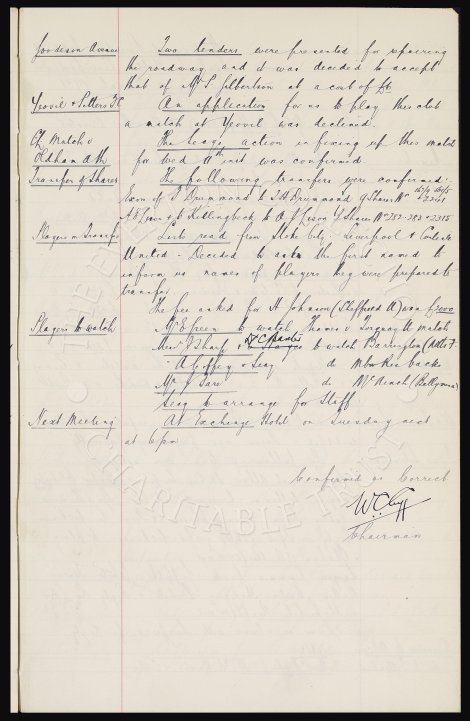 Goodison Avenue
Two tenders were presented for repairing
the roadway and it was decided to accept
that of Mr S. Gilbertson at a cost of £6
Yeovil & Petters F.C.
An application for us to play this club
a match at Yeovil was declined
Ch Match v
Oldham Ath
The Secys action in fixing up this match
for Wed 11th inst was confirmed
Transfer of Shares
The following transfers were confirmed:
Exors of Drummond to Drummond Shares No
2261
A E to Kellingbeck to Shares No 282-283 & 2315
Players on Transfer
Lists read from Stoke City, Liverpool &
United - Decided to ask the first named to
inform us names of players they were prepared to
transfer
The fee asked for H Johnson (Sheffield U) was
Players to watch
Mr E Green to watch Thames v Torquay U match
Messrs J Sharp & Dr C Baxter to watch Barrington
A Coffey & Secy do backs
Mr do Mc (Ballymena)
Secy to arrange for Staff
Next Meeting
At Exchange Hotel on Tuesday next
at 6pm
Confirmed as Correct
W.C. Cuff
Chairman
CHARITABLE TRUST